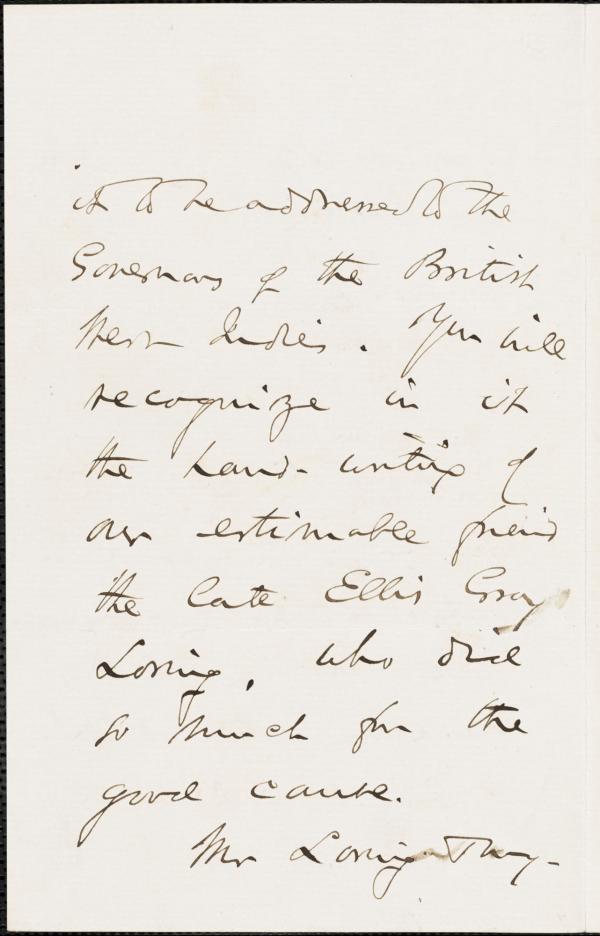 it to be addressed to the
Governors of the British
West Indies. You will
recognize in it
the hand-writing of
our estimable friend
the late Ellis Gray
Loring, who did
so much for the
good cause.
Mr Loring & my-